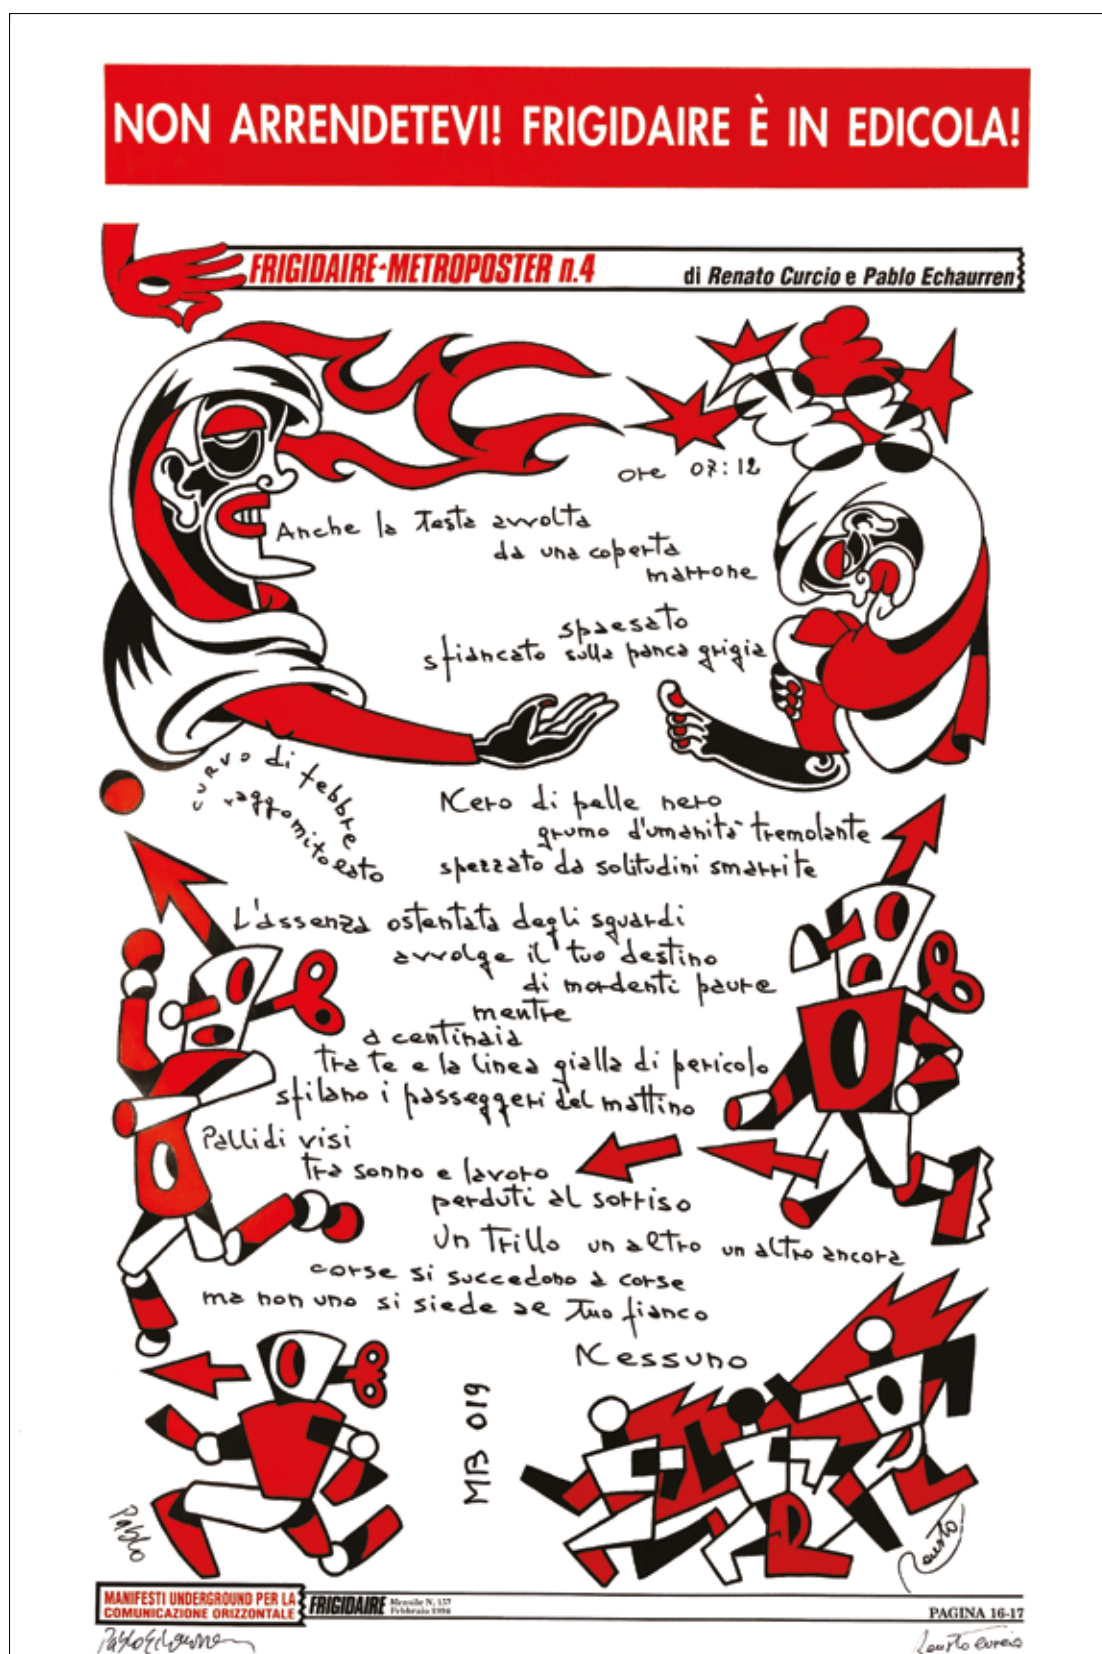 NON ARRENDETEVI! FRIGIDAIRE È IN EDICOLA!
FRIGIDAIRE-METROPOSTER n.4
di Renato Curcio e Pablo Echaurren
ore 07:12
Anche la testa avvolta
da una coperta
marrone
spaesato
sfiancato sulla panca grigia
curvo di febbre
raggomitolato
Nero di pelle nero
grumo d'umanità tremolante
spezzato da solitudini smarrite
L'assenza ostentata degli sguardi
avvolge il tuo destino
di mordenti paure
mentre
a centinaia
tra te e la linea gialla di pericolo
sfilano i passeggeri del mattino
Pallidi visi
tra sonno e lavoro
perduti al sorriso
Un trillo un altro un altro ancora
corse si succedono a corse
ma non uno si siede al tuo fianco
Nessuno
MB 019
Pablo
Renato
MANIFESTI UNDERGROUND PER LA
COMUNICAZIONE ORIZZONTALE
FRIGIDAIRE
Mensile N. 157
Febbraio 1994
PAGINA 16-17
Pablo Echaurren
Renato Curcio